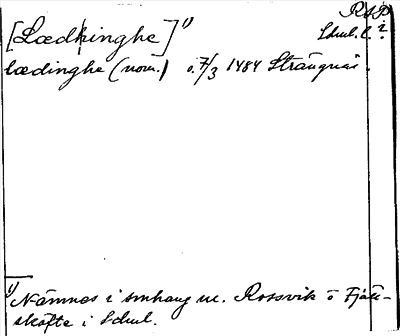 RSP
[Lædkinghe]¹⁾ Schul. C. ?
lædinghe (nom.) o. 7/3 1484 Strängnäs.
¹⁾ Nämnes i smhang m. Rossvik o Fjäll-
skäfte i Schul.